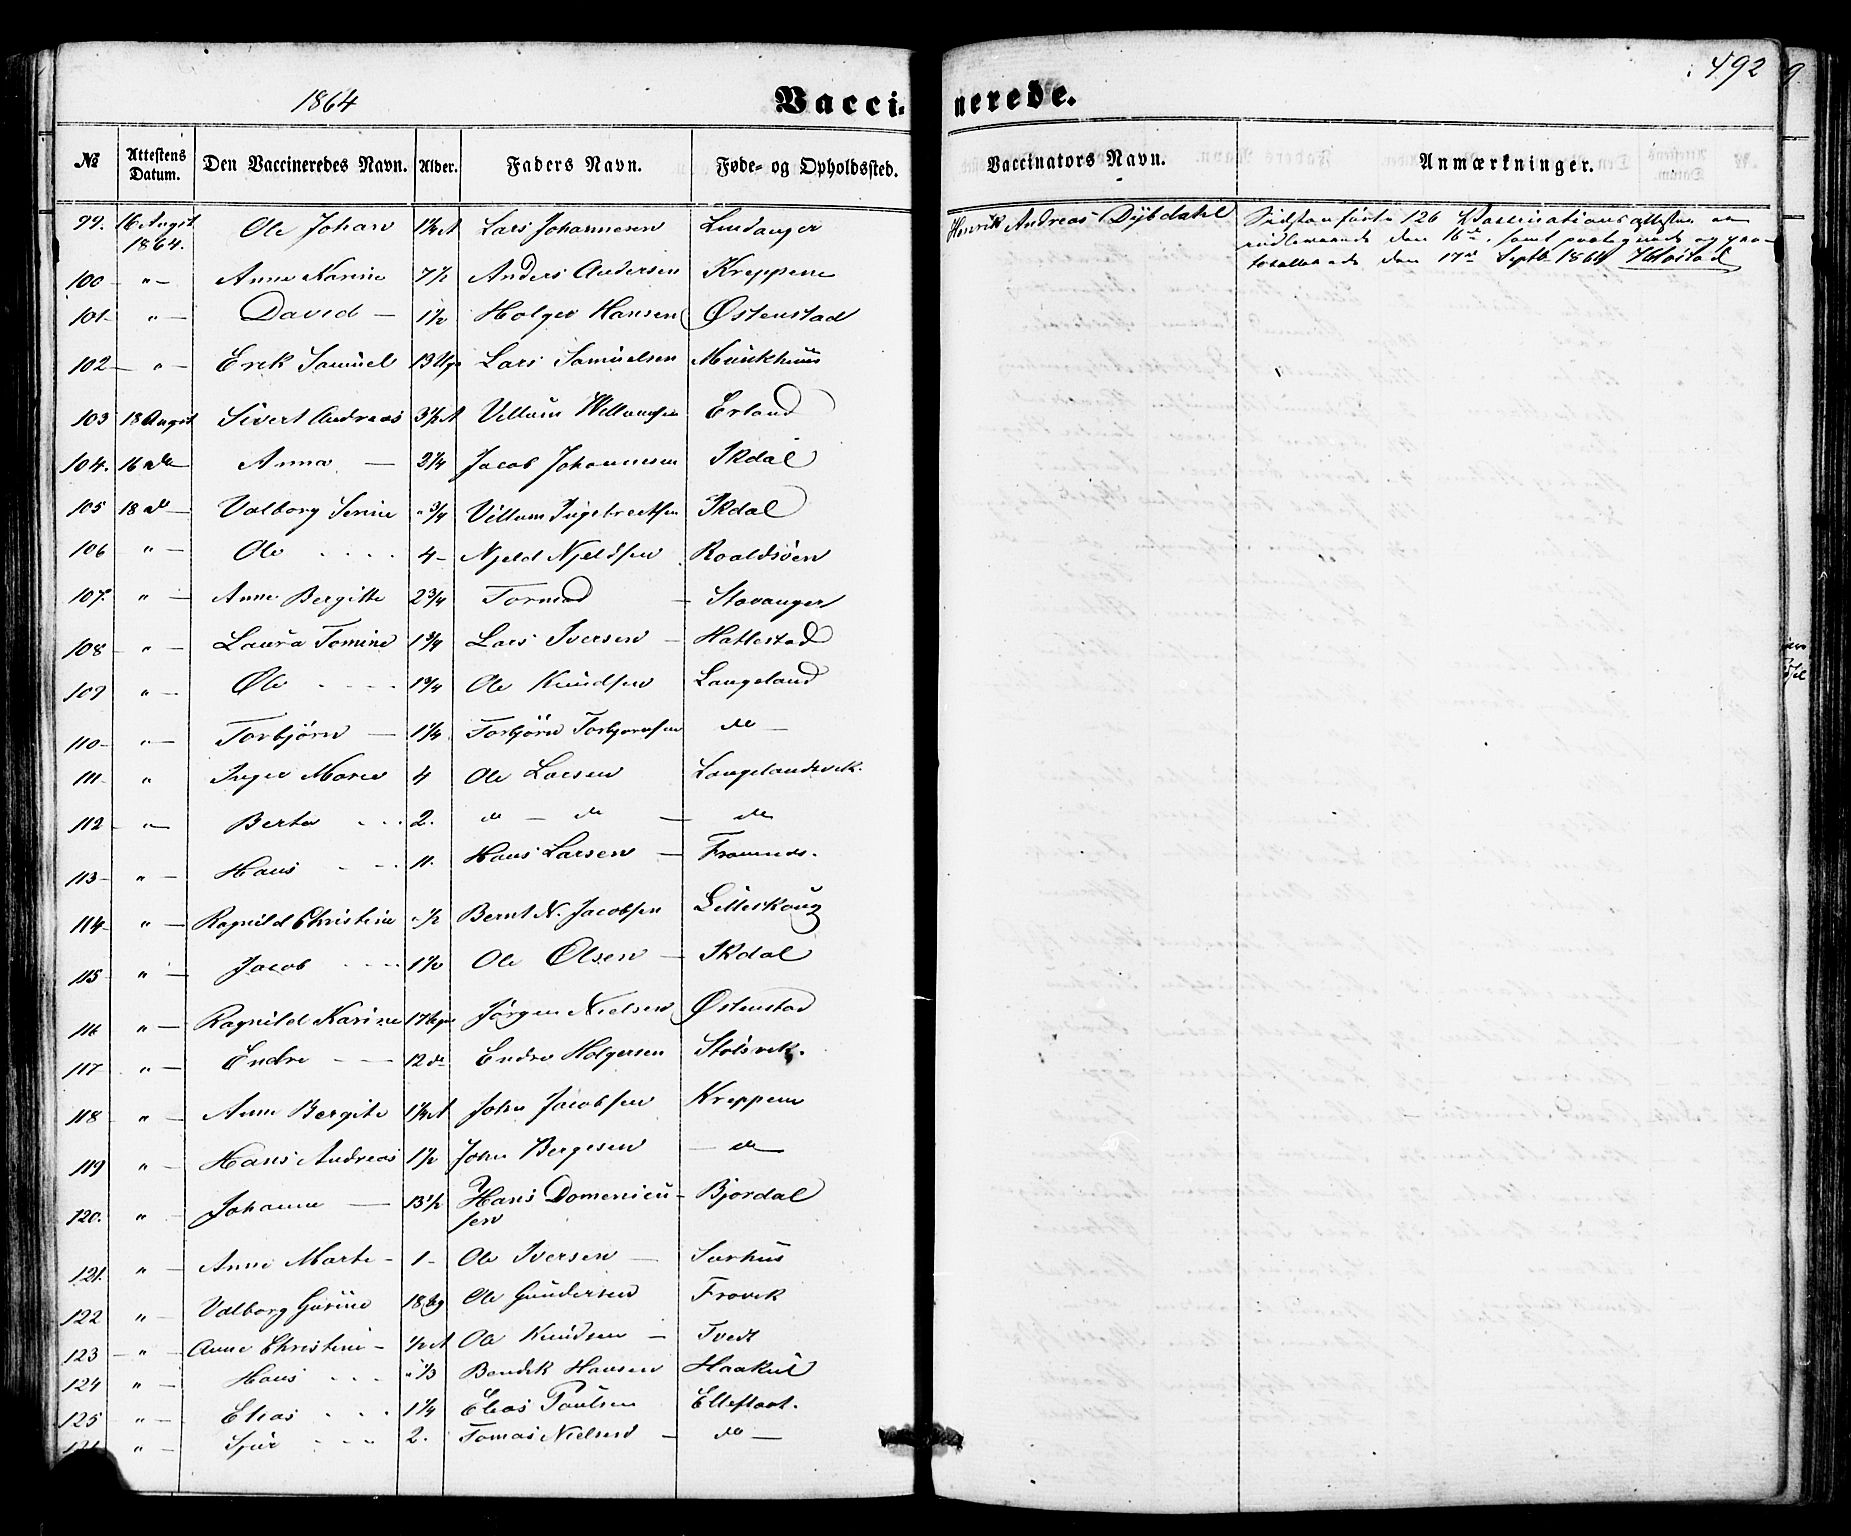 1864
Vacci- nerede.
492
№ Attestens Datum. Den Vaccineredes Navn. Alder. Faders Navn. Føde- og Opholdssted. Vaccinators Navn. Anmærkninger.
99. 16 Augst 1864. Ole Johan 1½ A Lars Johannesen Lindanger Henrik Andreas Dybdahl Sidstanførte 126 Vaccinationsattester er
indleverede den 16de, samt
den 17de Septb 1864
100 " — Anne Karine 7½ Anders Andersen Kreppene
101 " — David — 1½ Holger Hansen Østenstad
102 — " — Erik Samuel 13 Uger Lars Samuelsen Munkhuus
103 18 Augst Sivert Andreas 3½ A Villum Willumsen Erland
104. 16 do — Anna — 2¼ Jacob Johannesen Ikdal
105 18 do — Valborg Serine " ¾ Villum Ingebrectsen Ikdal
106 " — Ole 4 — Njeld Njeldsen Roaldsöen
107. " — Anne Bergitte 2¾ Tormod — Stavanger
108 — " — Laura Tomine 1¾ Lars Iversen — Hattestad
109 " — Ole 1¾ Ole Knudsen Langeland
110 — " — Torbjörn — 1¼ Torbjörn Torbjornsen do —
111 — " Inger Marie 4 Ole Larsen Langelandsvik.
112 — " — Berta 2. do — do — do
113 — " — Hans 11. Hans Larsen — Framnes.
114 — " — Ragnild Christine " ½ Bernt N. Jacobsen Lilleskoug
115 " — Jacob 1½ Ole Olsen — Ikdal
116 " — Ragnild Karine 17 Uger Jørgen Nielsen Østenstad
117 " — Endre — 12 do Endre Holgersen Stolsvik.
118 " — Anne Bergite 1¼ A John Jacobsen Kreppene
119 " — Hans Andreas 1½ John Bergesen — do —
120. " — Johanne — 13½ Hans Domenicu-
sen Bjordal
121. " — Anne Marte — 1 — Ole Iversen — Sørhus
122 " — Valborg Gurine 18 Ug Ole Gundersen Frovik
123 — " — Anne Christine — ½ A Ole Knudsen — Tvedt
124 " — Hans " ⅓ Bendik Hansen Haakul
125 " — Elias 1¼ Elias Paulsen
" — Sjur 2. Tomas Nielsen — do —